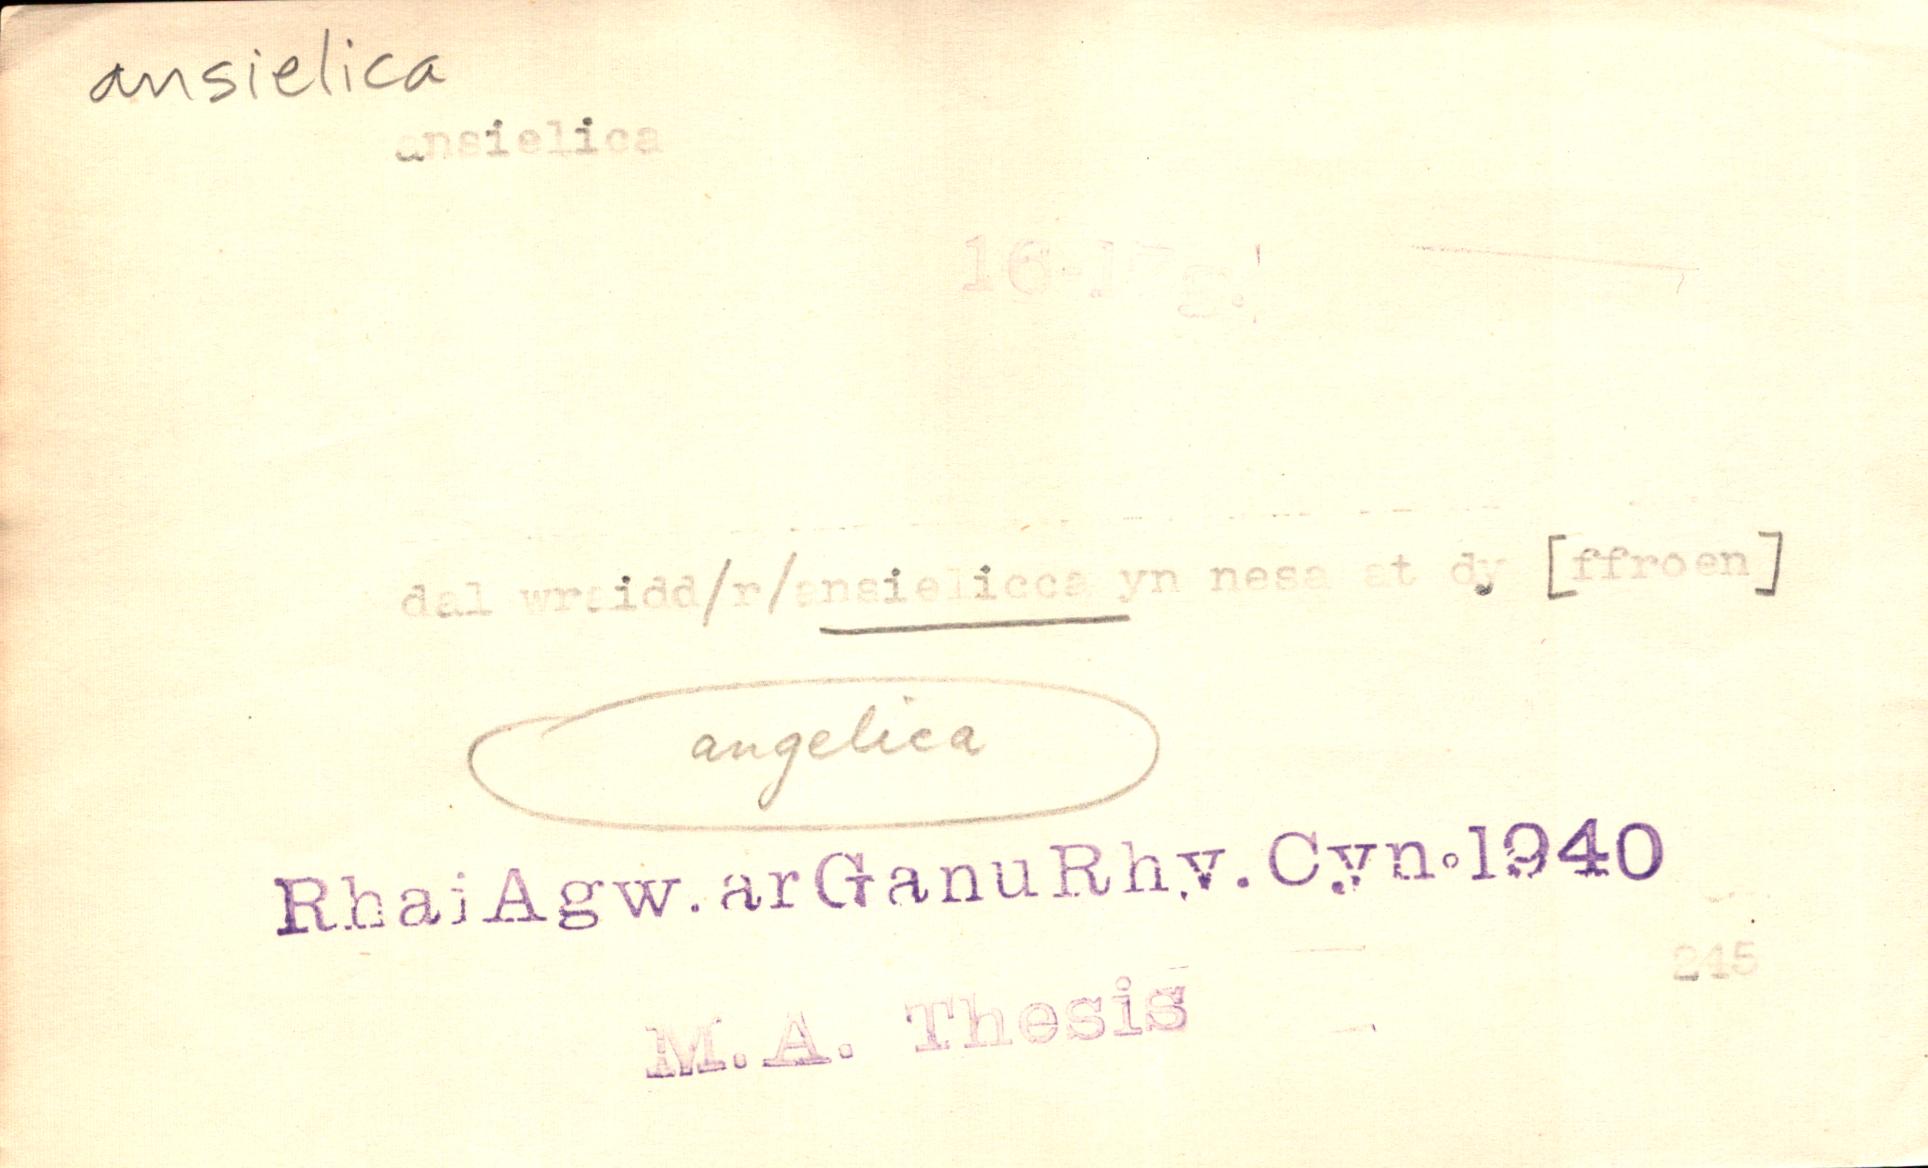 ansielica
ansielica
16-17g.
dal wraidd/r/ansielicca yn nesa at dy [ffroen]
angelica
RhaiAgw.arGanuRhy.Cyn.1940
245
M.A. Thesis